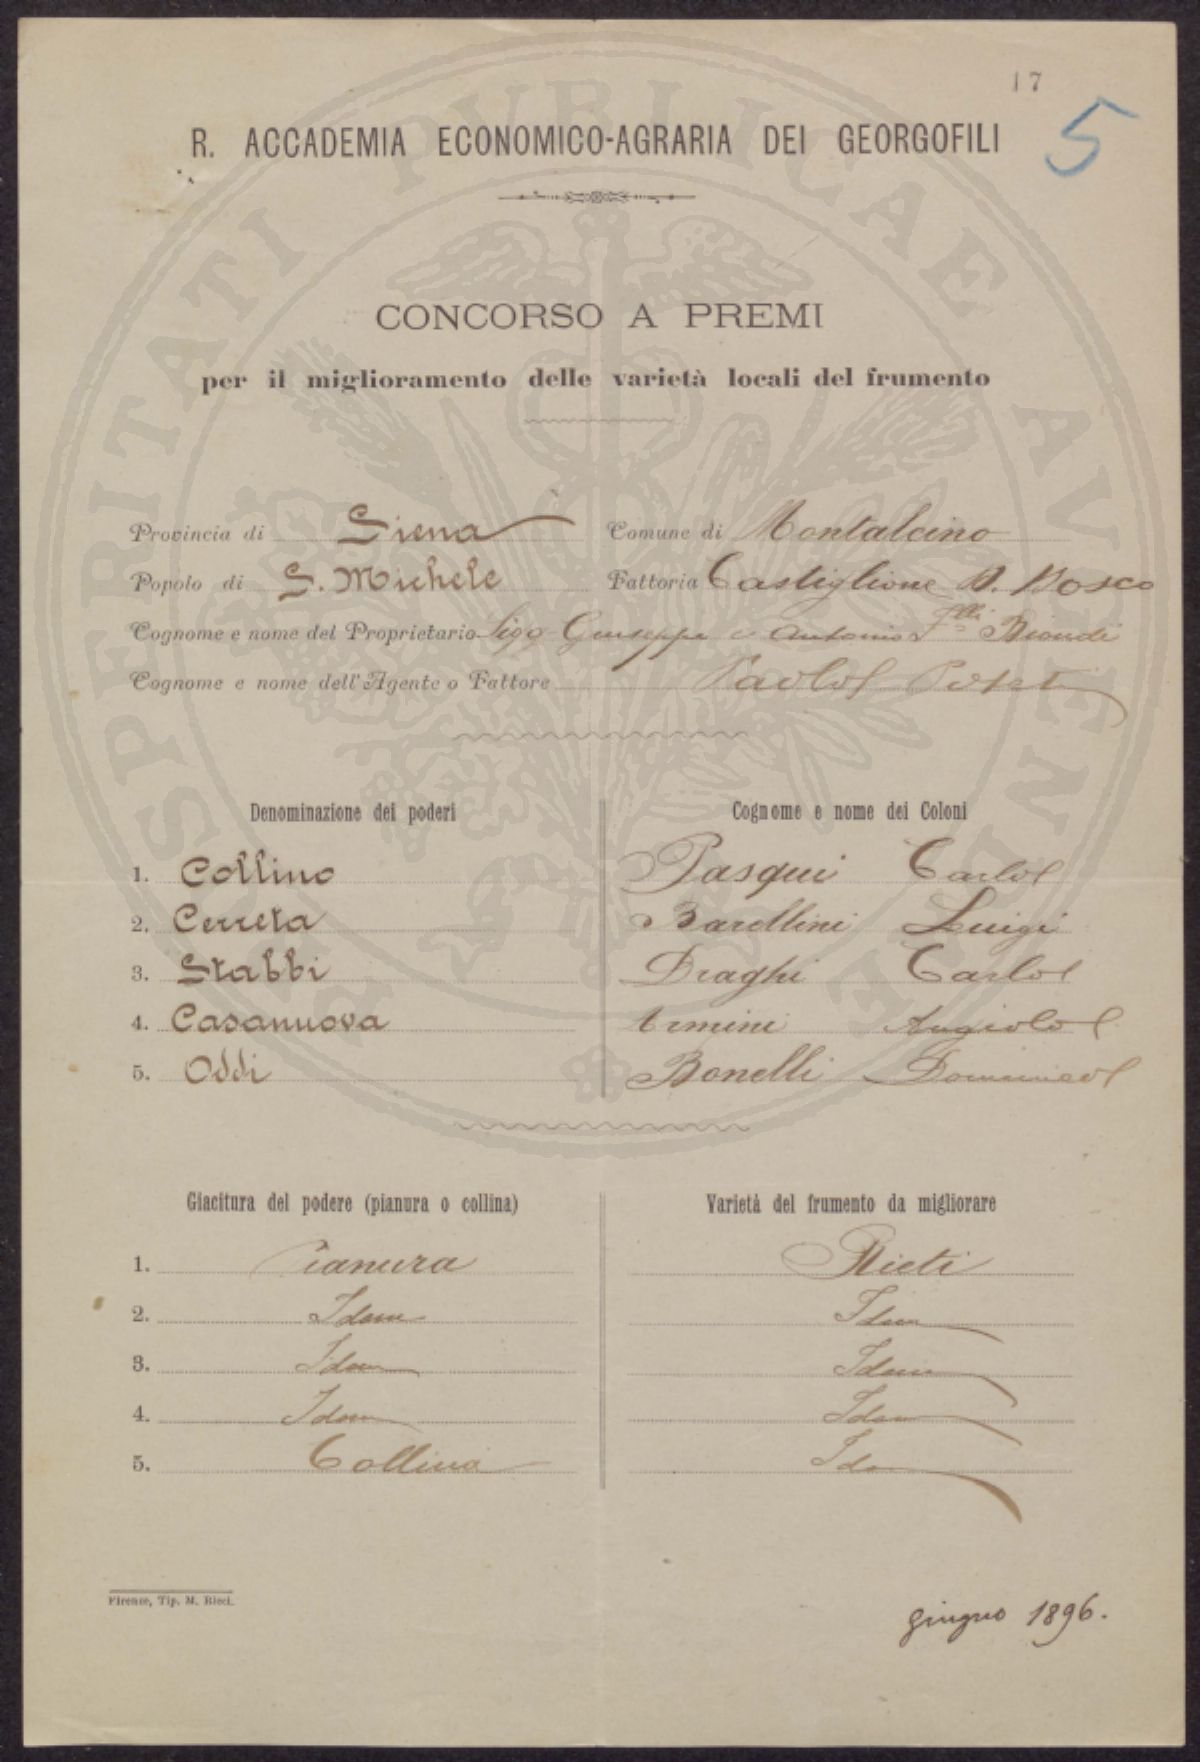 17
5
R. ACCADEMIA ECONOMICO-AGRARIA DEI GEORGOFILI
CONCORSO A PREMI
per il miglioramento delle varietà locali del frumento
Provincia di Siena Comune di Montalcino
Popolo di S. Michele Fattoria Castiglione D. Bosco
Cognome e nome del Proprietario Sigg Giuseppe e Antonio flli Biondi
Cognome e nome dell'Agente o Fattore Paolo
Denominazione dei poderi Cognome e nome dei Coloni
1. Collino Pasqui Carlo
2. Cerreta Barellini Luigi
3. Stabbi Draghi Carlo
4. Casanuova Armini Angiolo
5. Oddi Bonelli Domenico
Giacitura del podere (pianura o collina) Varietà del frumento da migliorare
1. Pianura Rieti
2. Idem Idem
3. Idem Idem
4. Idem Idem
5. Collina Idem
Firenze, Tip. M. Ricci.
giugno 1896.
PROSPERITATI PVBLICAE AVGENDAE